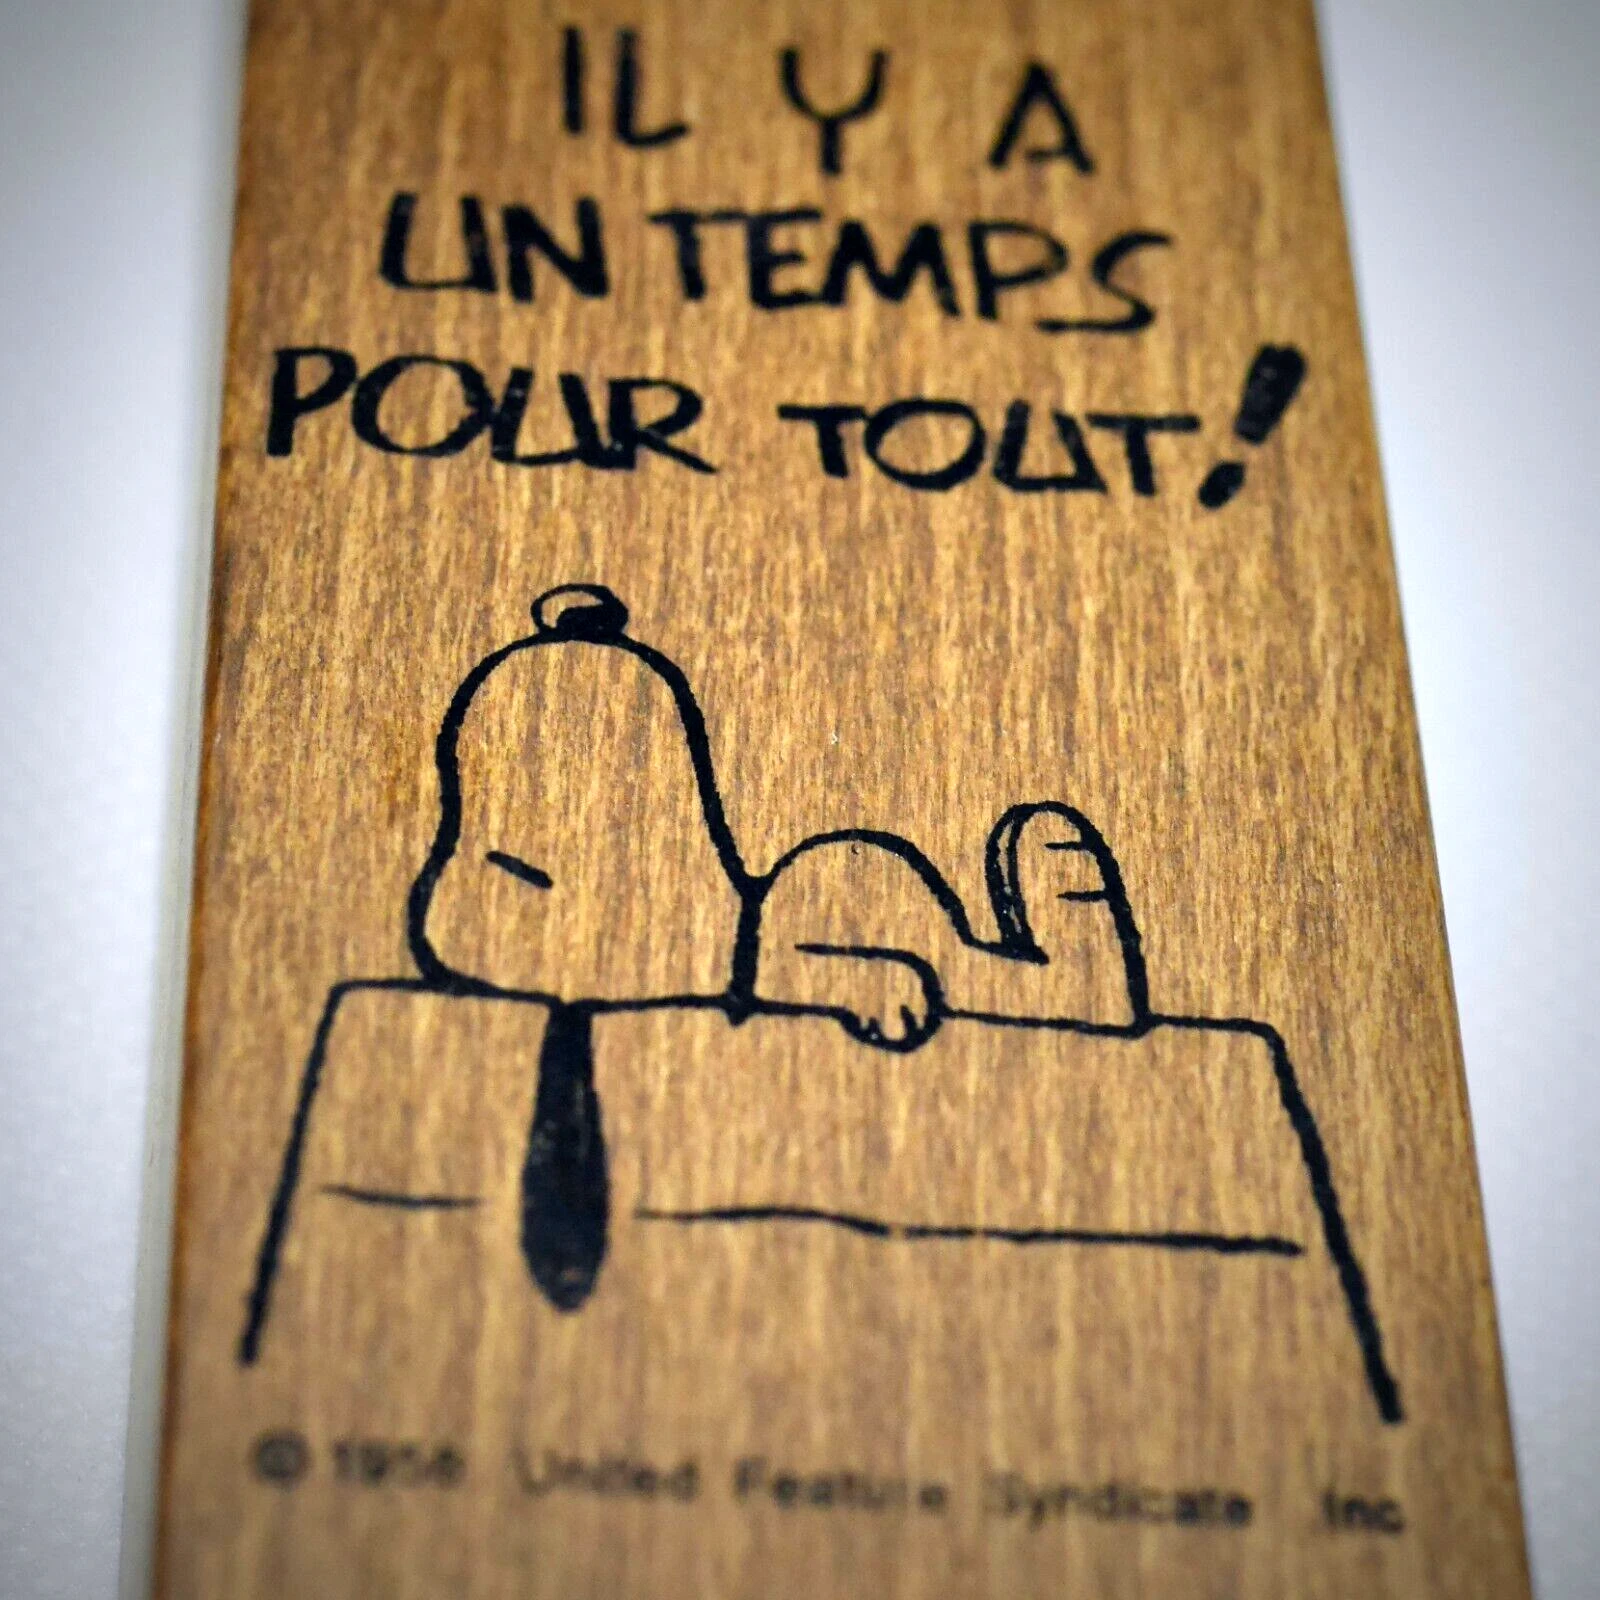 IL Y A
UN TEMPS
POUR TOUT!
© 1956 United Feature Syndicate Inc